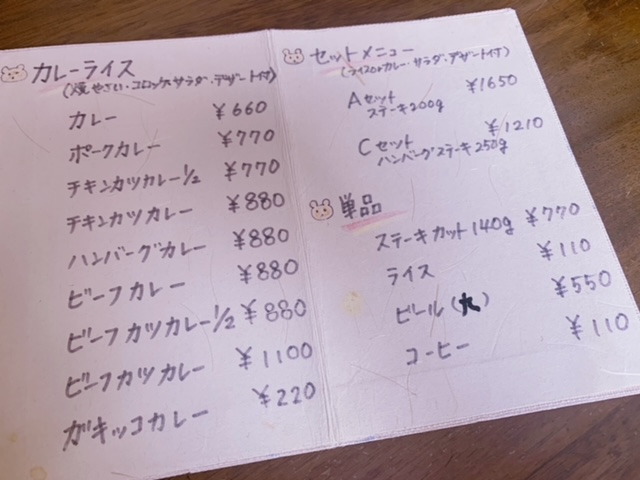 カレーライス
(焼やさい・コロッケ・サラダ・デザート付)
カレー ¥660
ポークカレー ¥770
チキンカツカレー1/2 ¥770
チキンカツカレー ¥880
ハンバーグカレー ¥880
ビーフカレー ¥880
ビーフカツカレー1/2 ¥880
ビーフカツカレー ¥1100
ガキッコカレー ¥220
セットメニュー
(ライスorカレー・サラダ・デザート付)
Aセット ¥1650
ステーキ200g
Cセット ¥1210
ハンバーグステーキ250g
単品
ステーキカット140g ¥770
ライス ¥110
ビール(大) ¥550
コーヒー ¥110